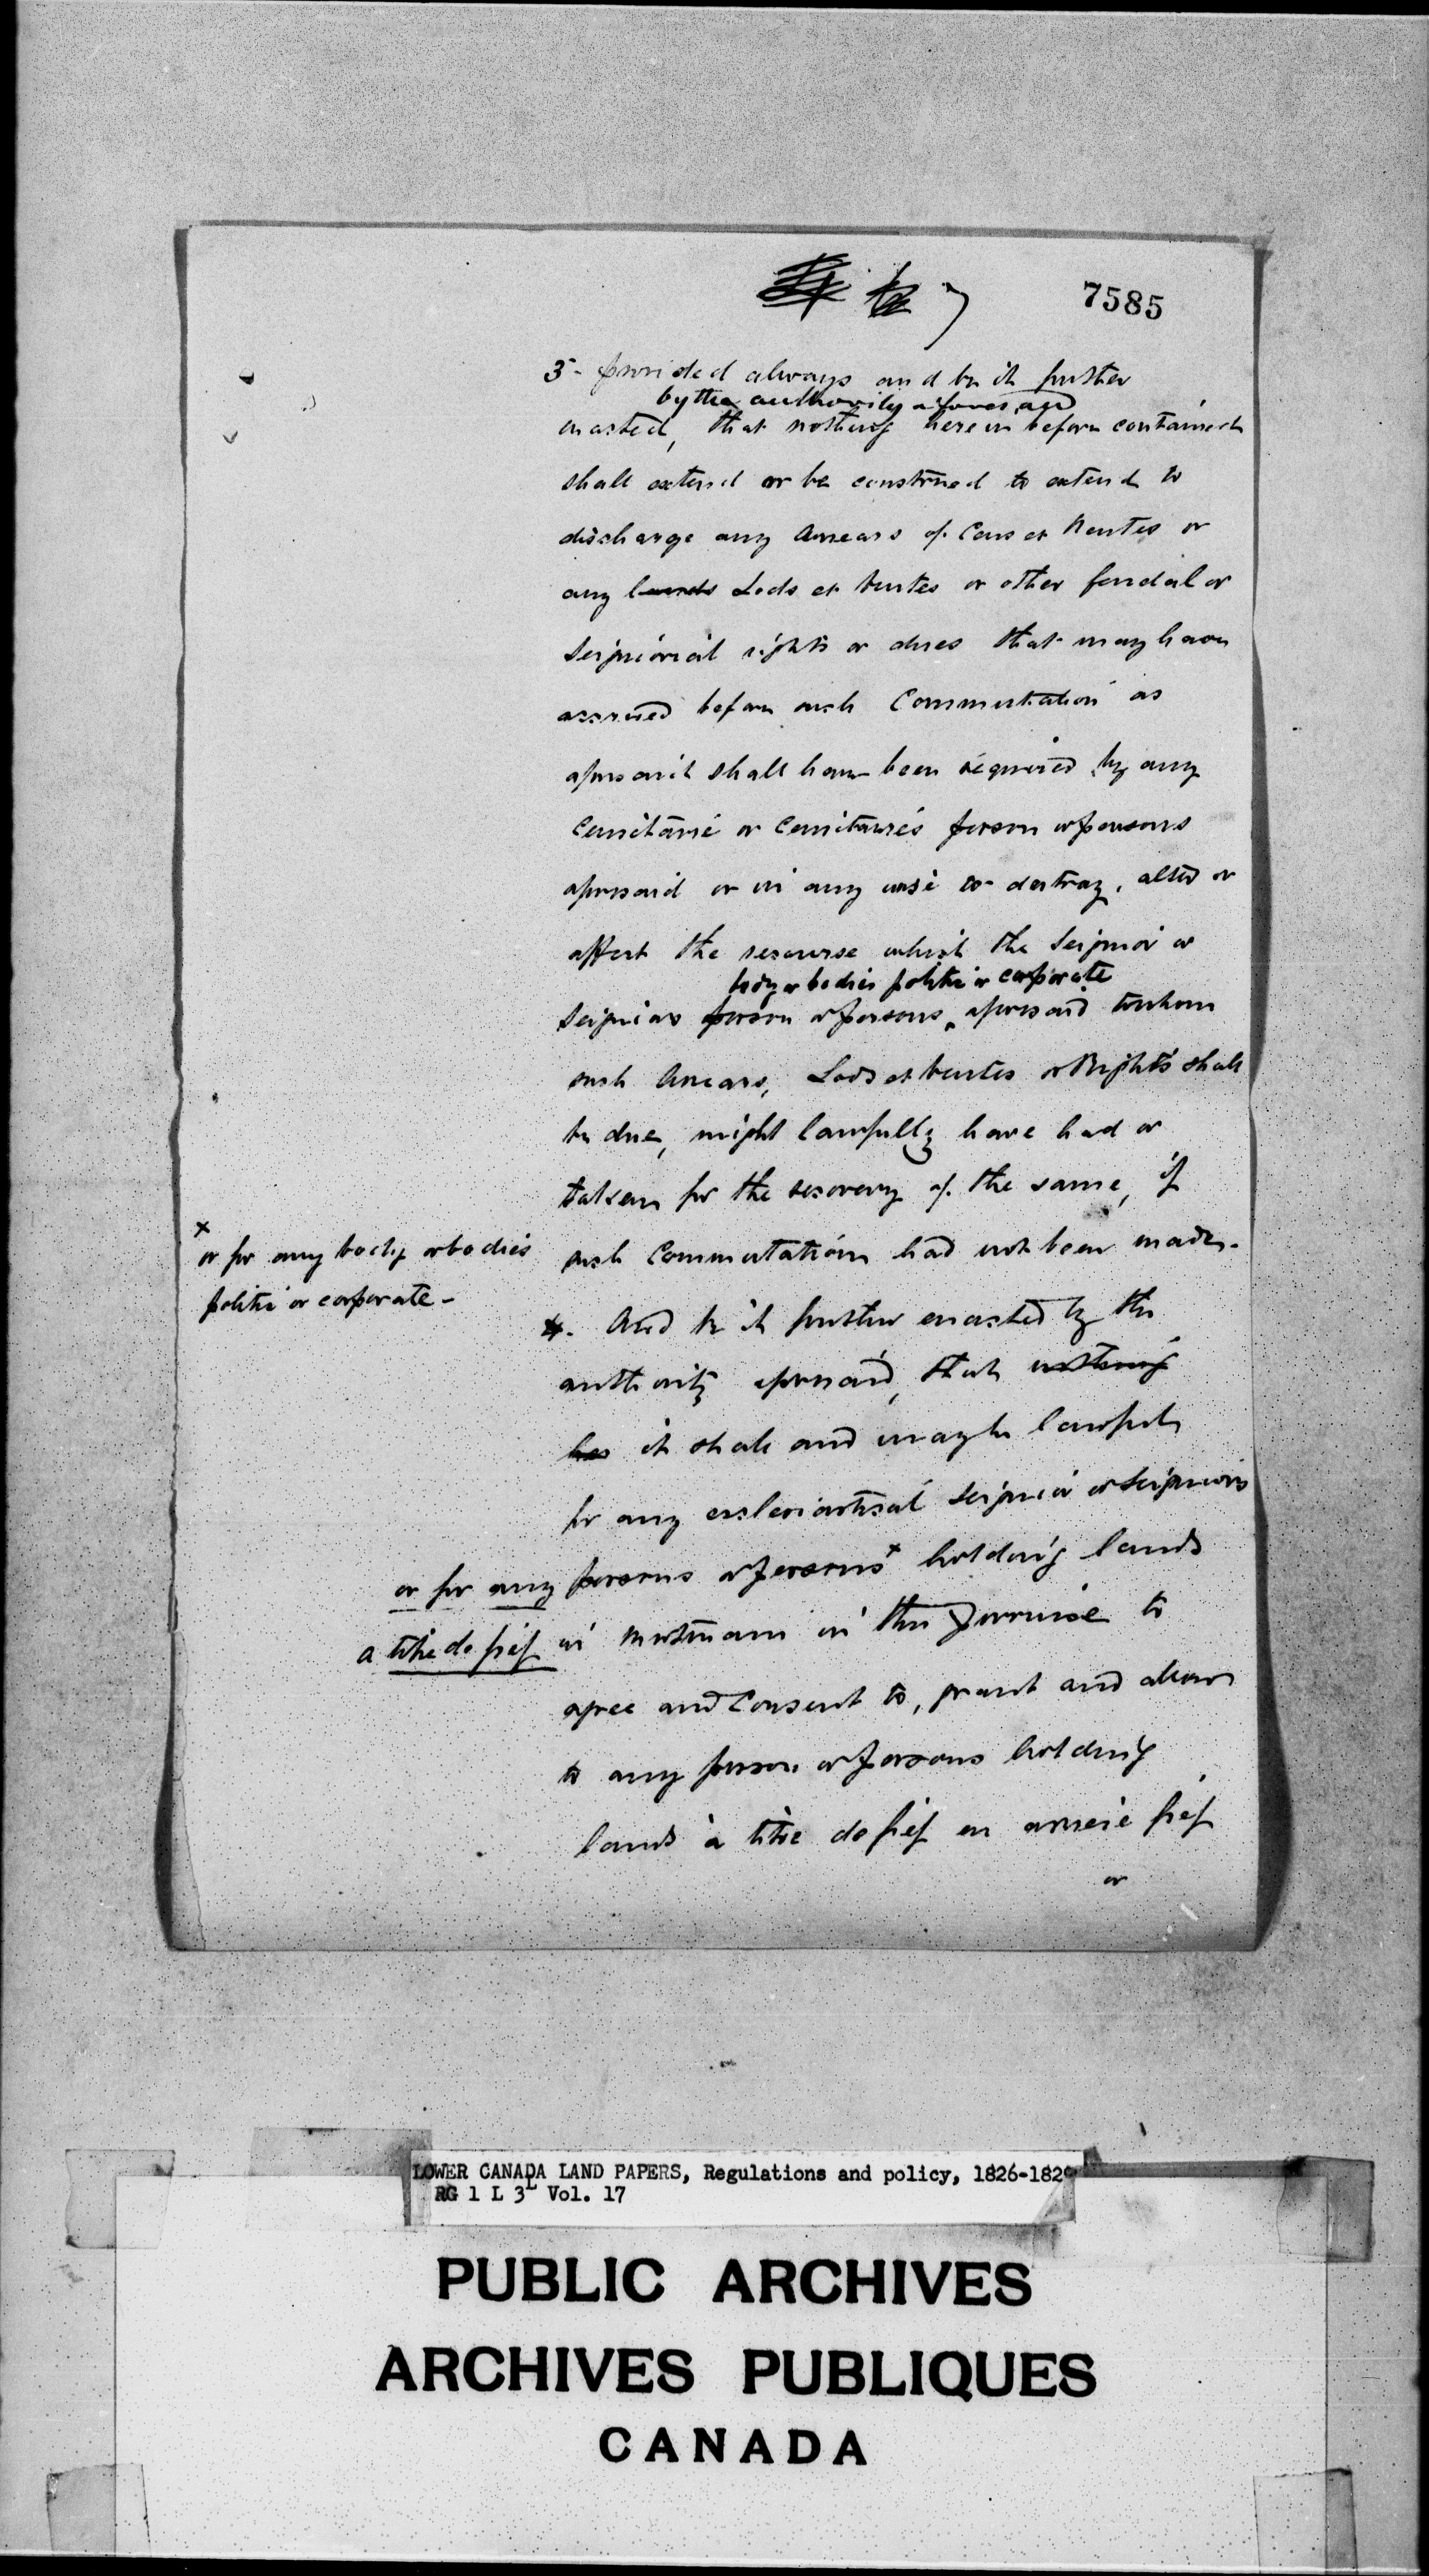 7
7585
3- provided always and be it further
by the authority aforesaid
enacted, that nothing herein before contained
shall extend or be construed to extend to
discharge any Arrears of Cens et Rentes or
any lands Lods et Ventes or other feudal or
Seigniorial rights or dues that may have
accrued before such Commutation as
aforesaid shall have been required by any
Censitaire or Censitaires person or persons
aforesaid or in any wise to destroy, alter or
affect the recourse which the Seignior or
body or bodies politic or corporate
Seigniors person or persons aforesaid to whom
such Arrears, Lods et Ventes or Rights shall
be due, might lawfully have had or
taken for the recovery of the same, if
such Commutation had not been made.
x
or for any body or bodies
politic or corporate -
4. And be it further enacted by the
authority aforesaid, that nothing
her it shall and may be lawful
for any ecclesiastical Seignior or Seigniors
or for any persons or persons x holding lands
a titre de fief in mortmain in this Province to
agree and Consent to, grant and allow
to any person or persons holding
lands à titre de fief en arriere fief
or
LOWER CANADA LAND PAPERS, Regulations and policy, 1826-1829
RG 1 L 3L Vol. 17
PUBLIC ARCHIVES
ARCHIVES PUBLIQUES
CANADA